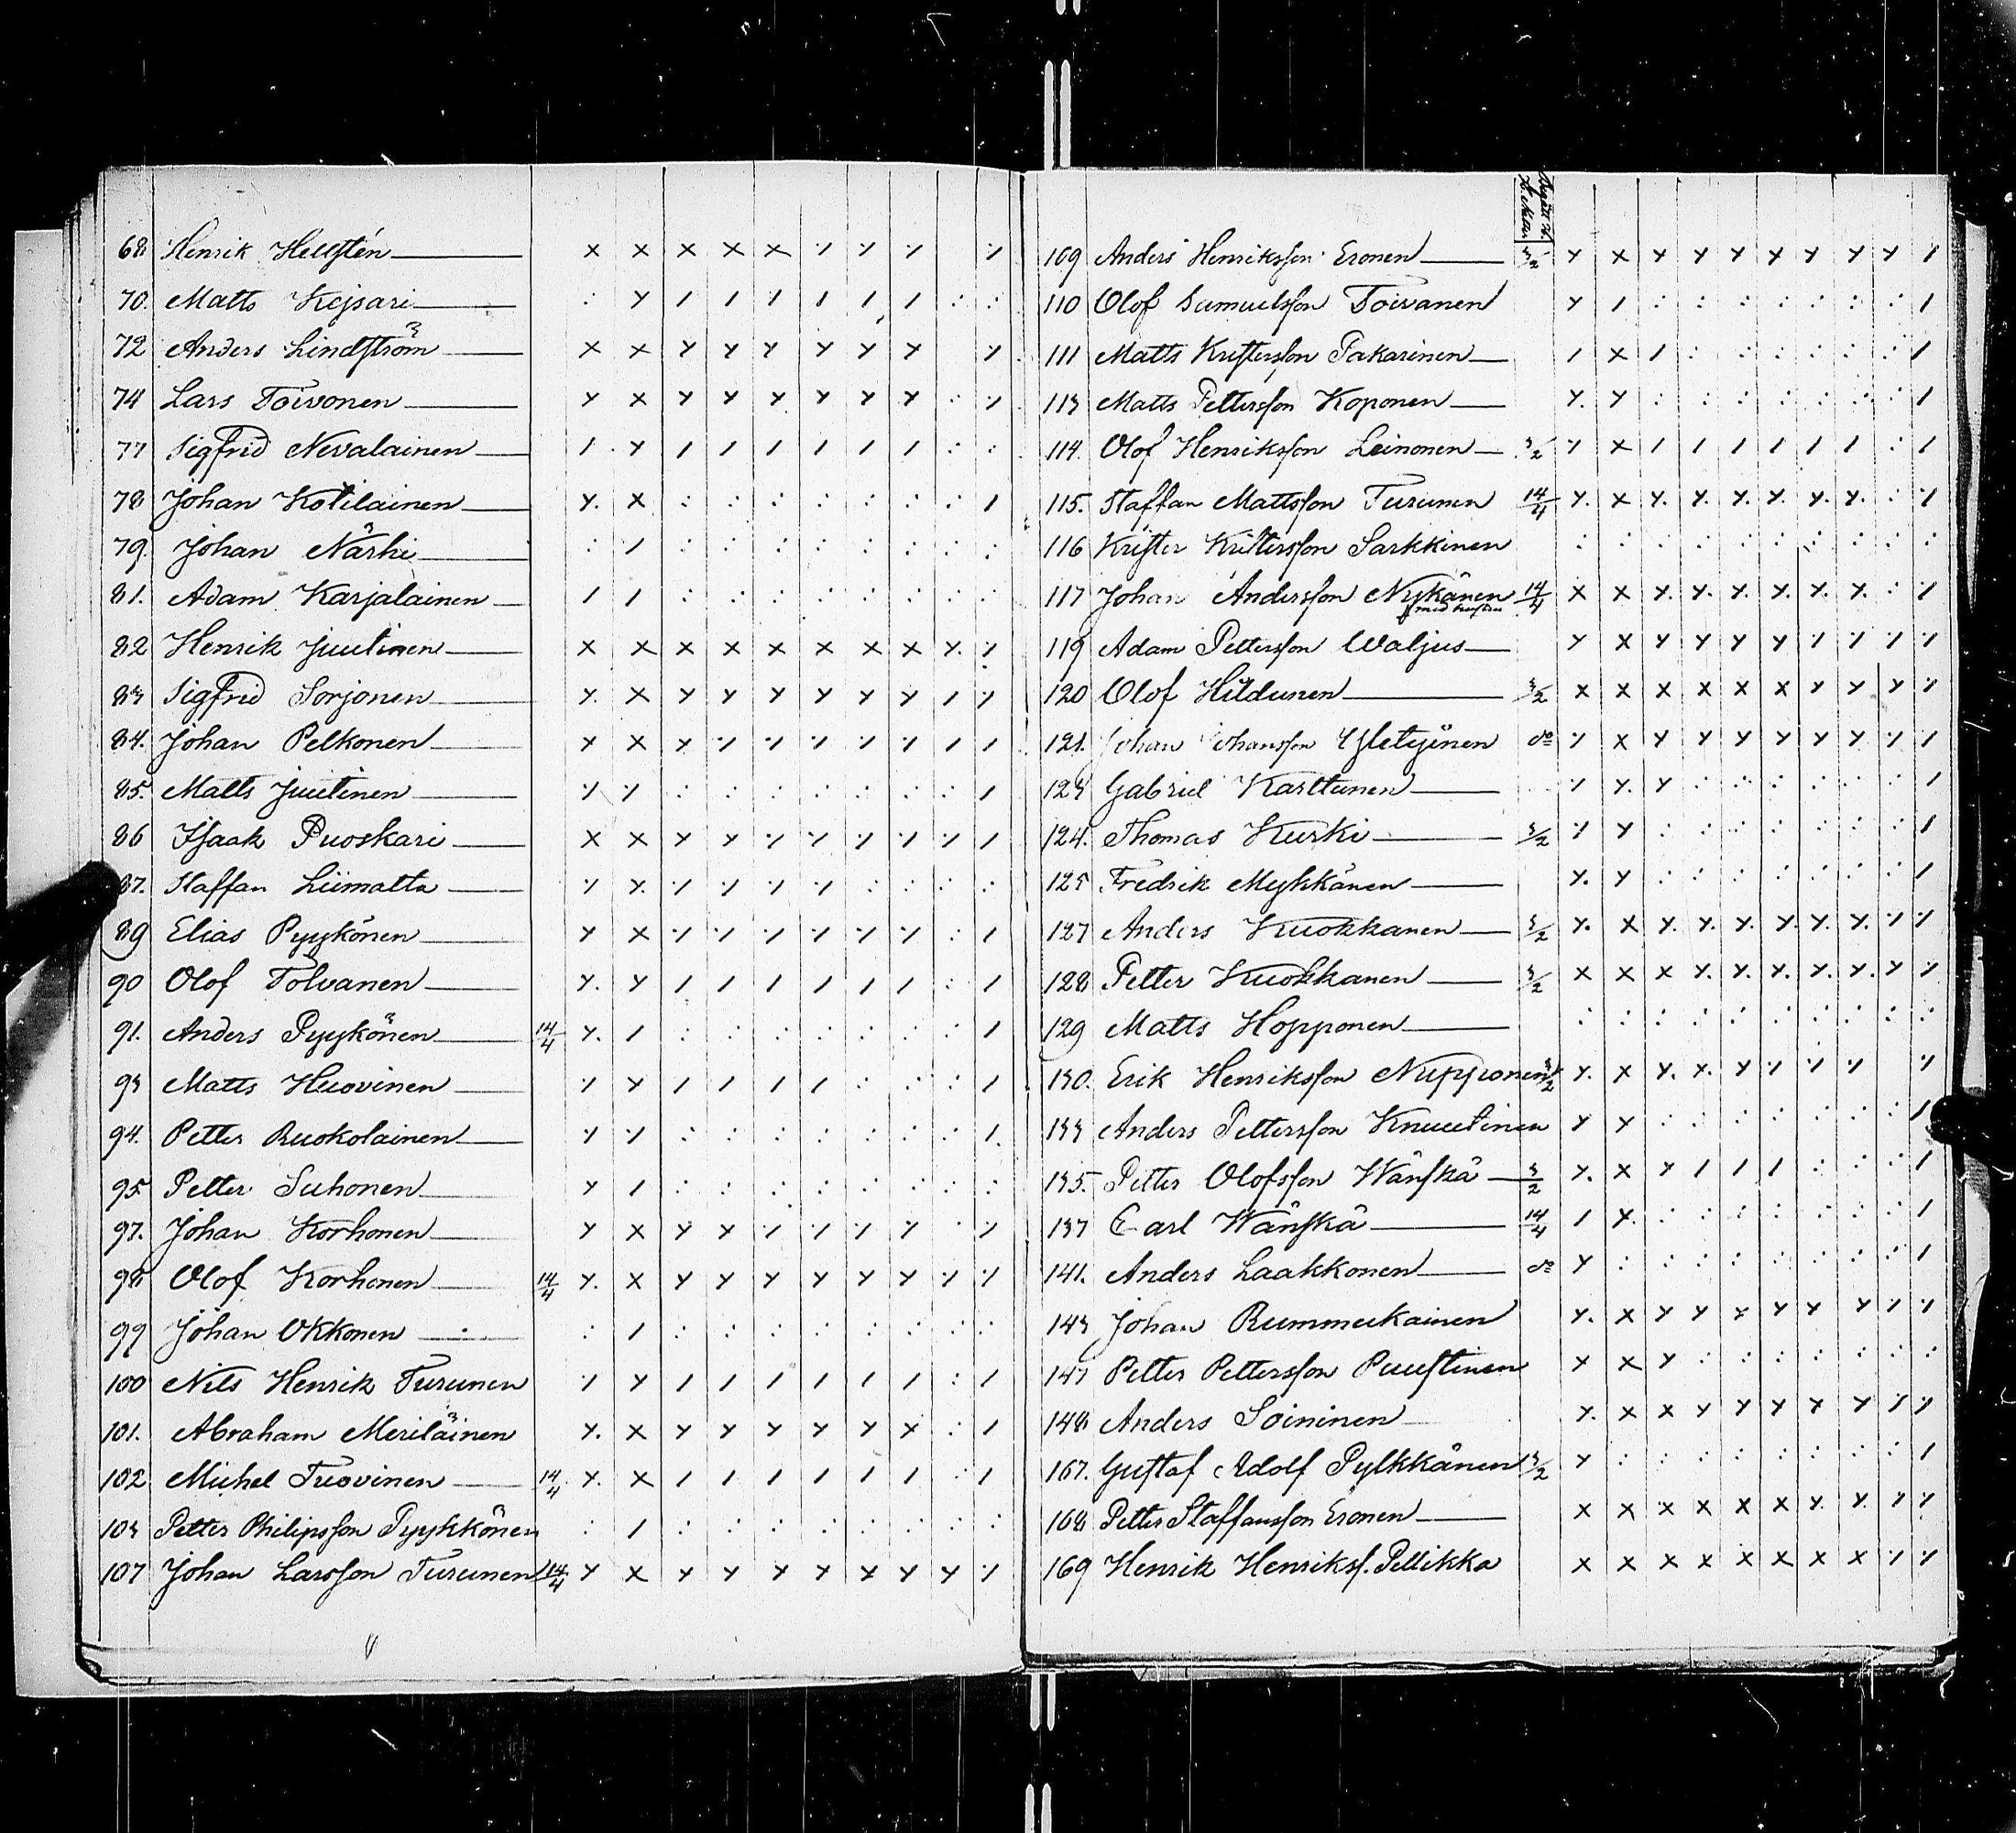 68 Henrik Hellstén x x x x x ⁒ ⁒ ⁒ ⁒
70. Matts Kejsari
72 Anders Lindström
74 Lars Toivonen
77 Sigfrid Nevalainen
78 Johan Kotilainen
79. Johan Närhi
81. Adam Karjalainen
82 Henrik Juutinen
83 Sigfrid Sorjonen
84. Johan Pelkonen
85. Matts Juutinen
86 Isaak Puoskari
87. Staffan Liimatta
89 Elias Pyykönen
90 Olof Tolvanen
91. Anders Pyykönen 14/4
93 Matts Huovinen
94. Petter Ruokolainen
95 Petter Suhonen
97. Johan Korhonen
98 Olof Korhonen 14/4
99 Johan Okkonen
100 Nils Henrik Turunen
101. Abraham Meriläinen
102 Michel Tuovinen 14/4
103 Petter Philipsson Pyykkönen
107 Johan Larsson Turunen 14/4
109 Anders Henriksson Eronen 3/2
110 Olof Samuelsson Toivanen
111 Matts Kristersson Pakarinen
113 Matts Pettersson Koponen
114. Olof Henriksson Leinonen 3/2
115. Staffan Mattsson Turunen 14/4
116 Krister Kristersson Sarkkinen
117 Johan Andersson Nykänen 14/4
med hustru
119 Adam Pettersson Waljus
120 Olof Hildunen 3/2
121. Johan Johansson Yletyinen do
123 Gabriel Karttunen
124. Thomas Kurki 3/2
125 Fredrik Mykkänen
127 Anders Kuokkanen 3/2
128 Petter Kuokkanen 3/2
129 Matts Hopponen
130. Erik Henriksson Nupponen 3/2
133 Anders Pettersson Knuutinen
135. Petter Olofsson Wänskä 3/2
137 Carl Wänskä 14/4
141. Anders Laakkonen do
143 Johan Rummukainen
147 Petter Pettersson Puustinen
148 Anders Soininen
167. Gustaf Adolf Pylkkänen 3/2
168 Petter Staffansson Eronen
169 Henrik Henrikss. Pellikka